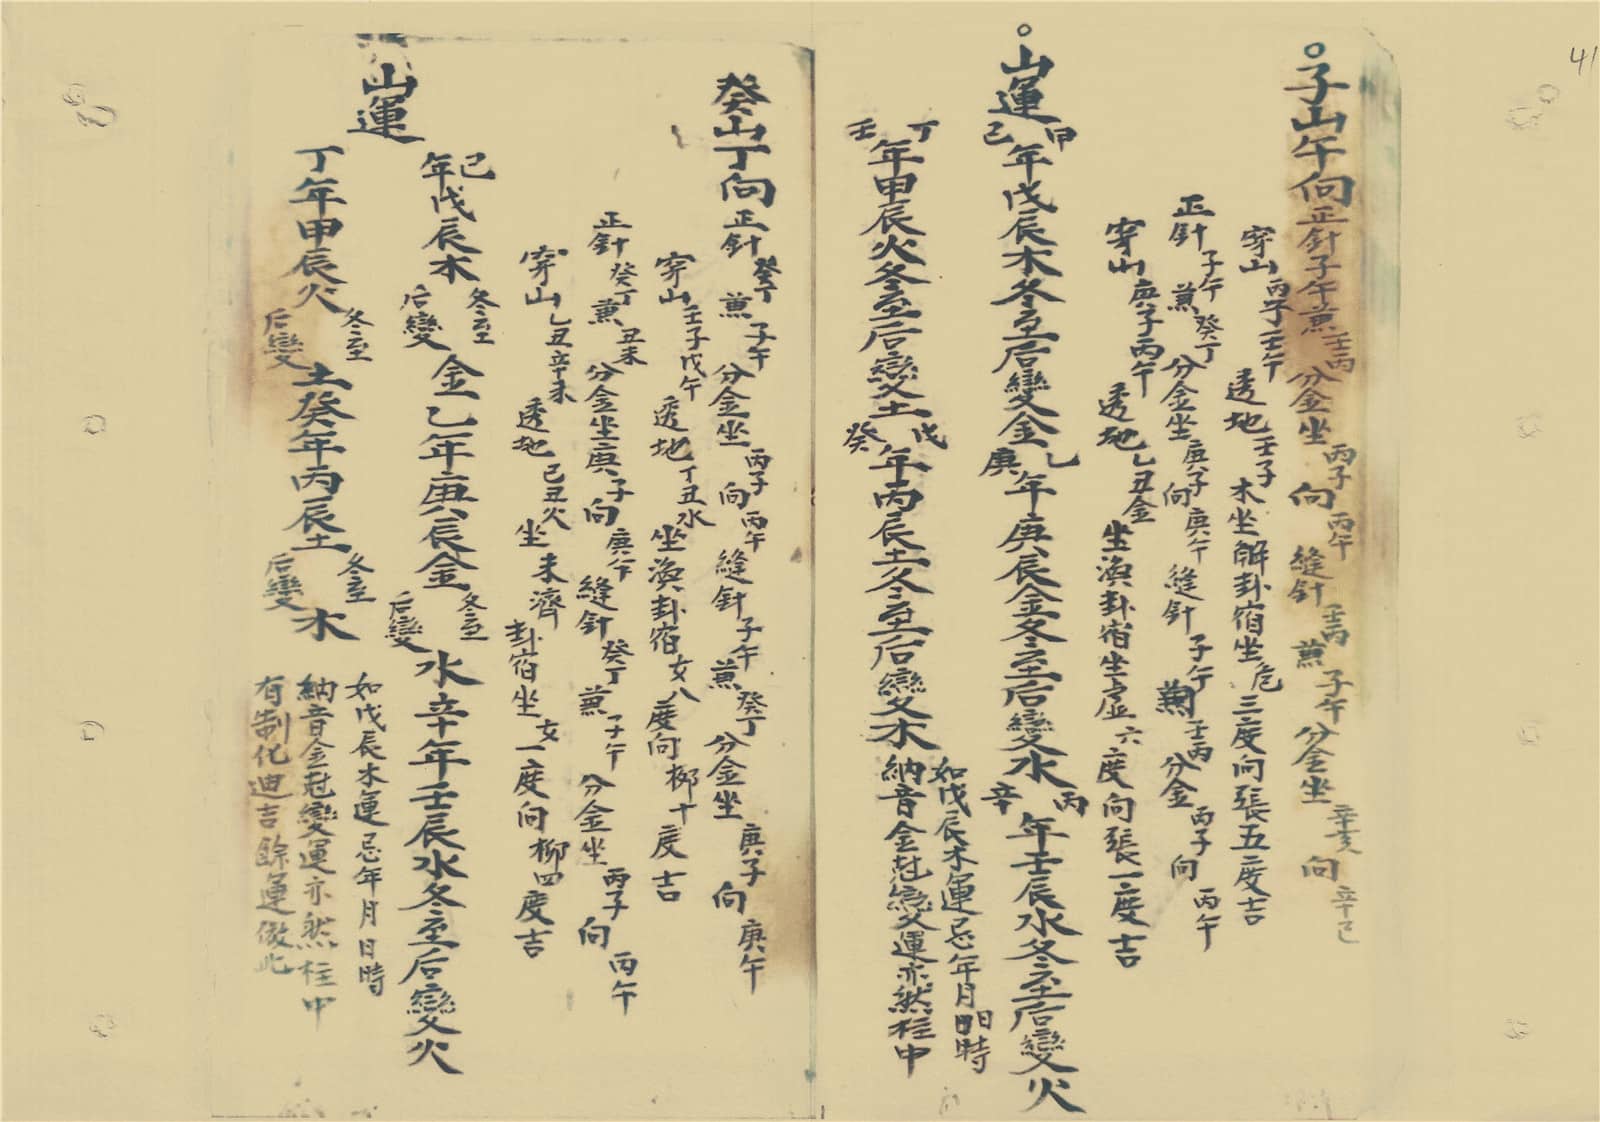 41
○子山午向正針子午兼壬丙分金坐丙子向丙午縫針壬丙兼子午分金坐辛亥向辛巳
穿山丙子壬午透地壬子木坐解卦宿坐危三度向張五度吉
正針子午兼癸丁分金坐庚子向庚午縫針子午兼壬丙分金丙子向丙午
穿山庚子丙午透地乙丑金坐渙卦宿坐虛六度向張一度吉
○山運甲己年戊辰木冬至后變金乙庚年庚辰金冬至后變水丙辛年壬辰水冬至后變火
丁壬年甲辰火冬至后變土戊癸年丙辰土冬至后變木如戊辰木運忌年月日時
納音金尅變運亦然柱中
癸山丁向正針癸丁兼子午分金坐丙子向丙午縫針子午兼癸丁分金坐庚子向庚午
穿山壬子戊午透地丁丑水坐渙卦宿女八度向柳十度吉
正針癸丁兼丑未分金坐庚子向庚午縫針癸丁兼子午分金坐丙子向丙午
穿山乙丑辛未透地己丑火坐未濟卦宿坐女一度向柳四度吉
山運己年戊辰木冬至后變金乙年庚辰金冬至后變水辛年壬辰水冬至后變火
丁年甲辰火冬至后變土癸年丙辰土冬至后變木如戊辰木運忌年月日時
納音金尅變運亦然柱中
有制化迪吉餘運倣此